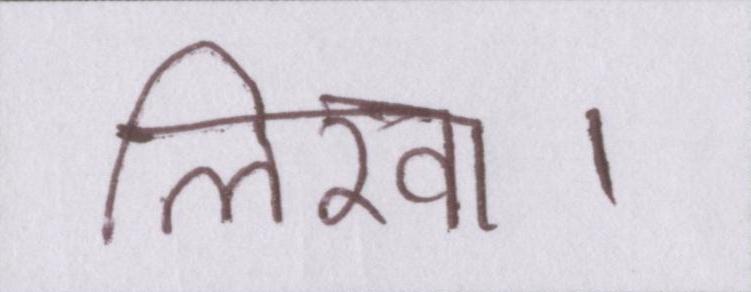 लिखा ।